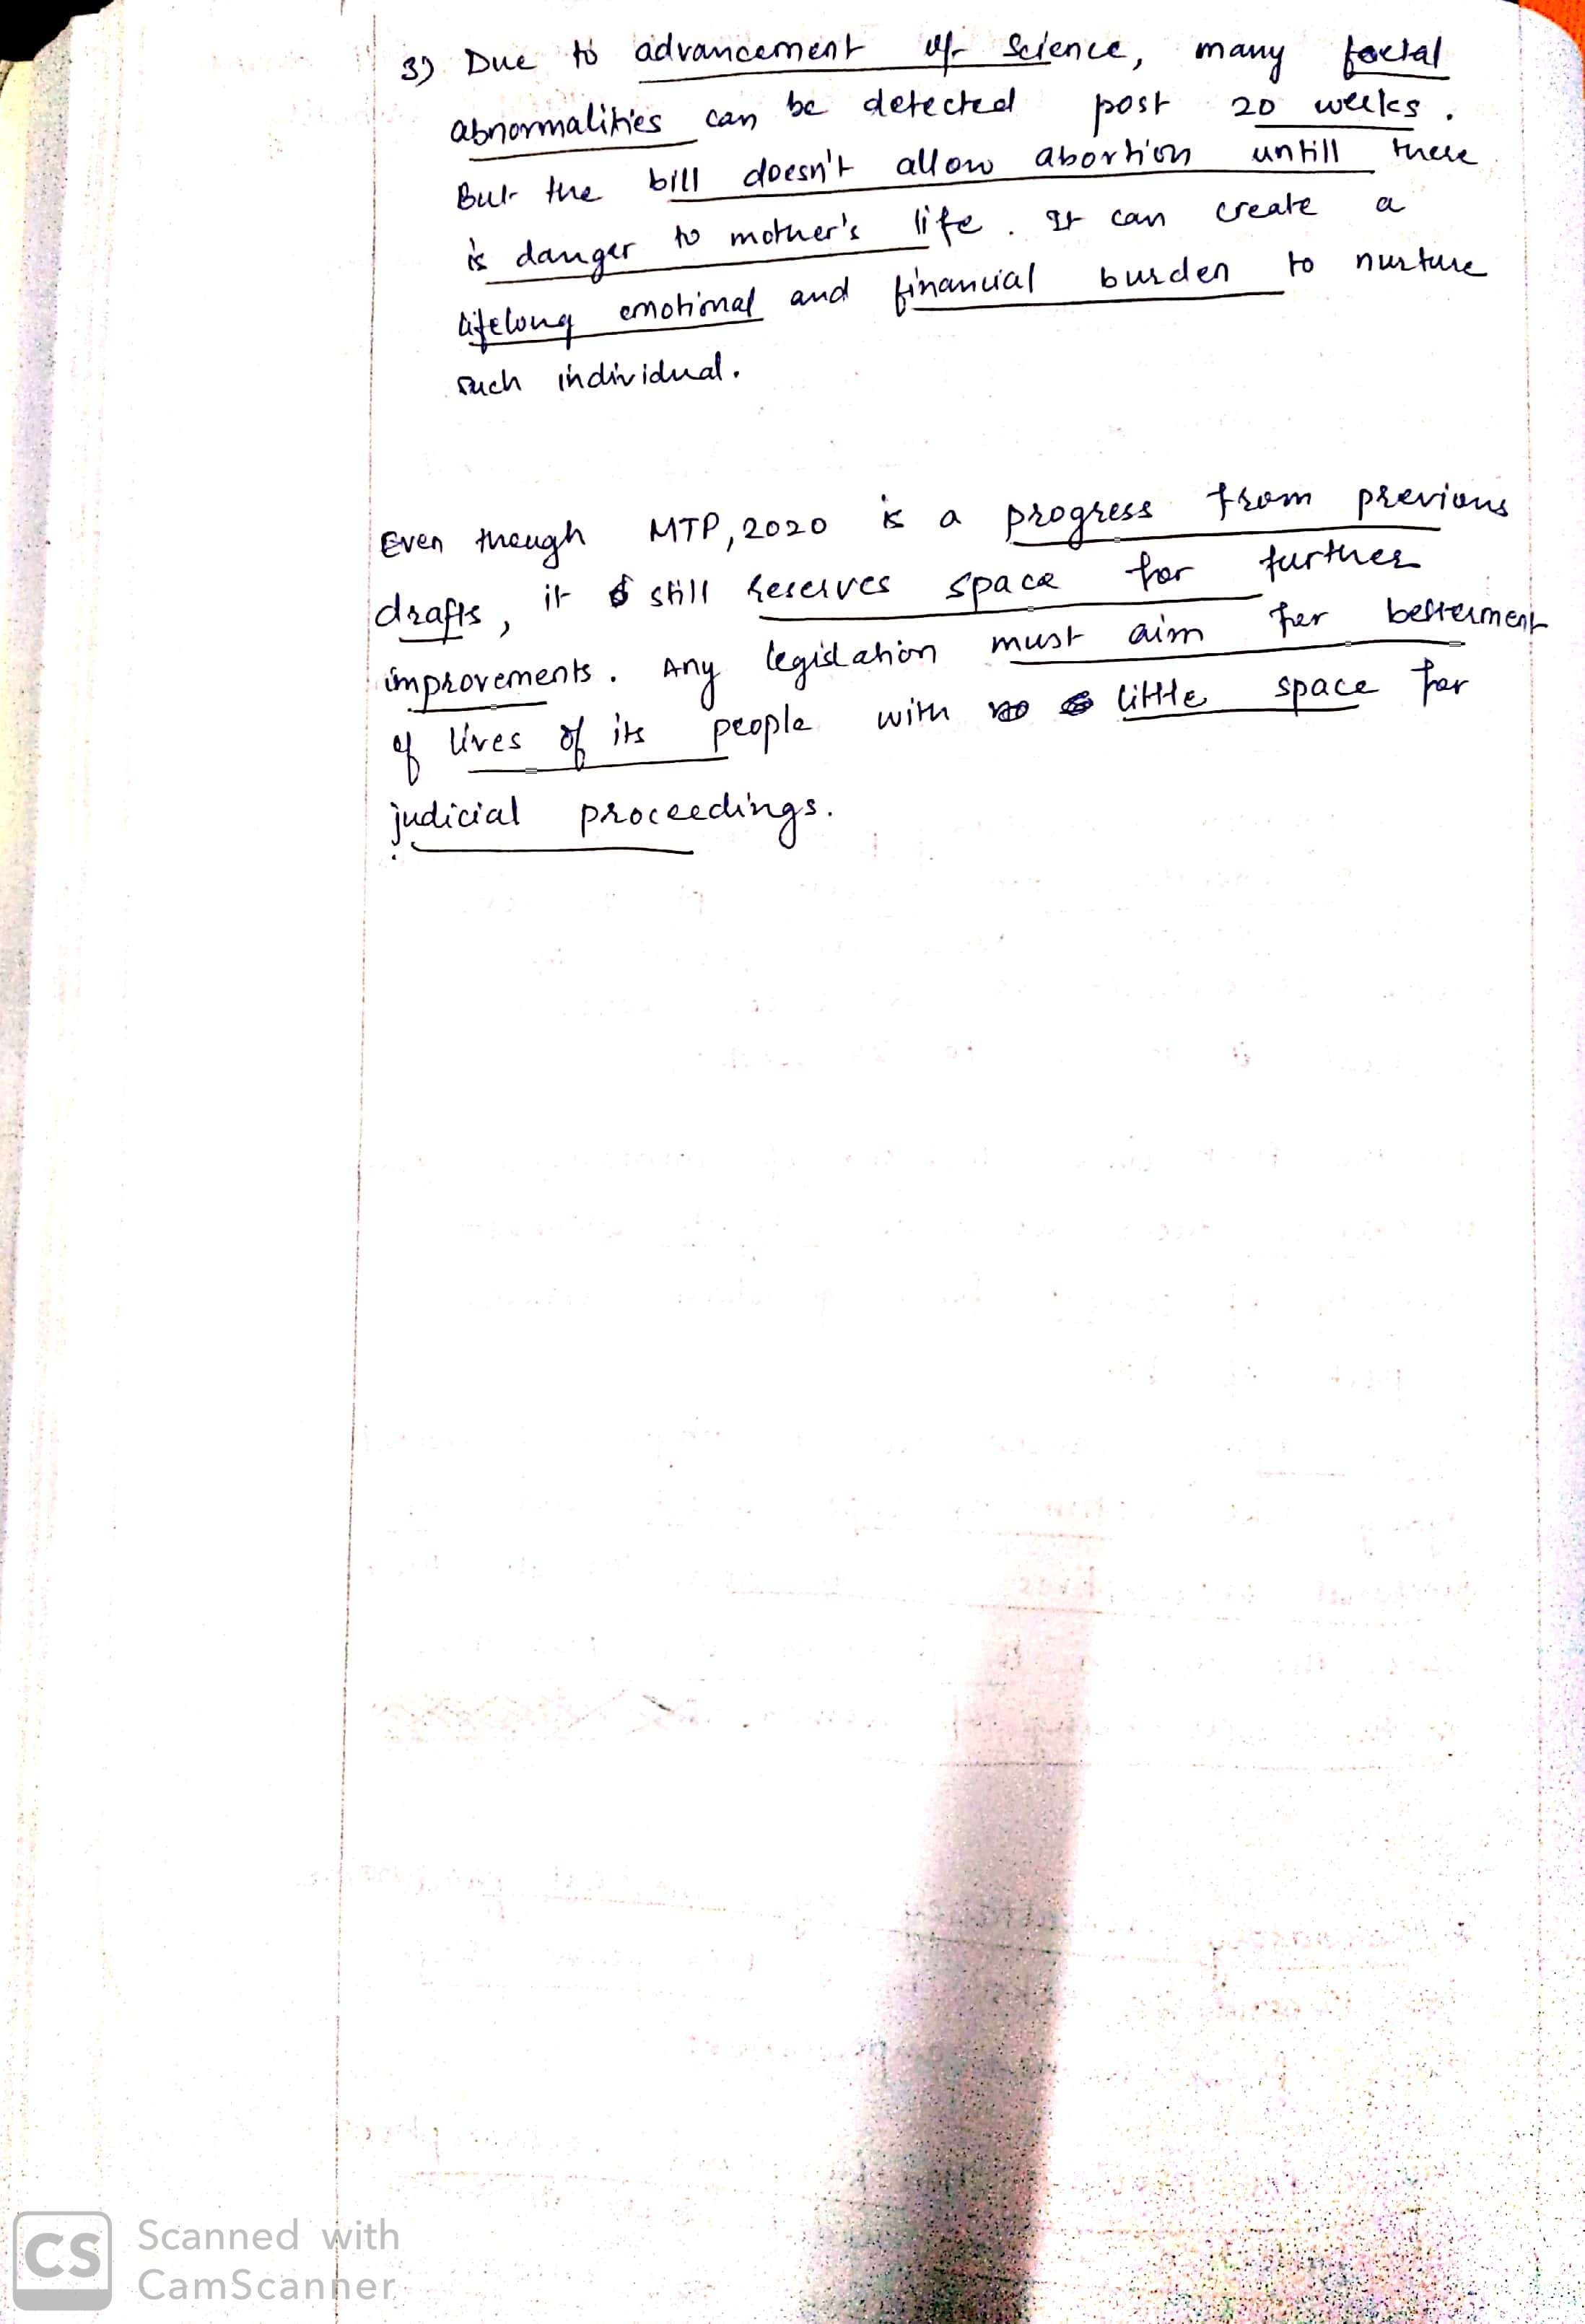 3) Due to advancement of Science, many foetal
abnormalities can be detected post 20 weeks.
But the bill doesn't allow abortion untill there
is danger to mother's life. It can create a
lifelong emotional and financial burden to nurture
such individual.
Even though MTP, 2020 is a progress from previous
drafts, it still reserves space for further
improvements. Any legislation must aim for betterment
of lives of its people with little space for
judicial proceedings.
CS Scanned with
CamScanner